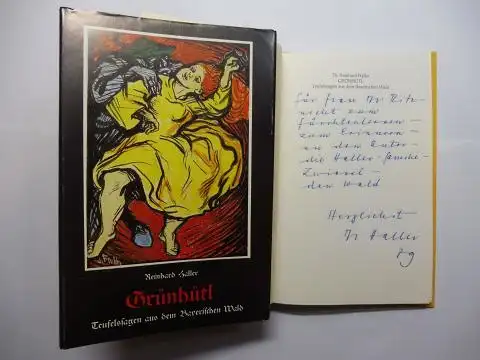 J. Fruth
Reinhard Haller
Grünhütl
Teufelssagen aus dem Bayerischen Wald
Dr. Reinhard Haller
GRÜNHÜTL
Teufelssagen aus dem Bayerischen Wald
Für Frau Dr Ritz
nicht zum
Fürchtenlernen –
zum Erinnern –
an den Autor –
die Haller-
Zwiesel –
den Wald
Herzlichst
Dr Haller